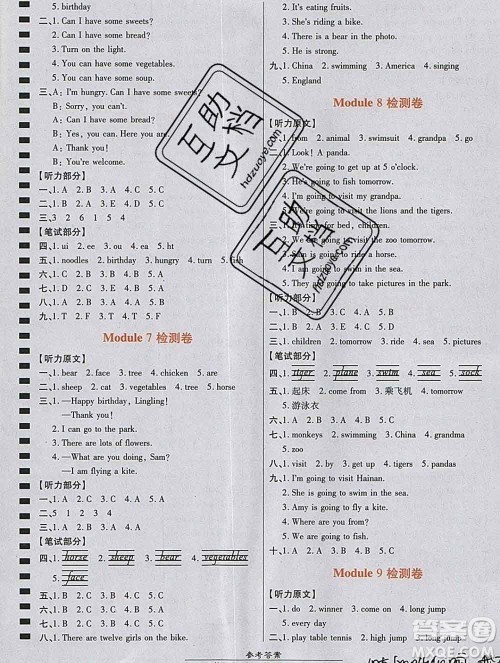 5. birthday
二、1. Can I have some sweets?
2. Can I have some bread?
3. Turn on the light.
4. Can you have some vegetables.
5. Can you have some soup.
三、A: I'm hungry. Can I have some
B: Sorry, you can't.
A: Can I have some bread?
B: Yes, you can. Here you are.
A: Thank you!
B: You're welcome.
【听力部分】
一、1. A 2. B 3. A 4. C 5. C
三、3 2 1 5 4
【笔试部分】
四、1. ui 2. ee 3. ou 4. a 5. u
五、1. noodles 2. birthday 3. hungry 4. turn 5. fish
六、1. C 2. B 3. B 4. C 5. C
七、1. C 2. B 3. B 4. A 5. A
八、1. T 2. F 3. F 4. T 5. F
Module 7 检测卷
【听力原文】
一、1. bear 2. face 3. tree 4. chicken 5. park
二、1. sheep 2. cat 3. tree 4. bear 5. face
三、1. —Happy birthday, Lingling!
—Thank you!
2. I can go to the park.
3. There are lots of flowers.
4. —What are you doing, Sam?
—I am flying a kite.
【听力部分】
一、1. A 2. C 3. C 4. B 5. A
二、5 1 2 3 4
三、1. B 2. A 3. B 4. A
【笔试部分】
四、1. horse 2. sheep 3. bear 4. vegetables
5. face
五、1. B 2. A 3. C 4. B 5. C
六、1. B 2. A 3. B 4. B 5. C
七、1. C 2. D 3. B 4. A
八、1. There are twelve girls in our class.
2. It's eating fruits.
3. She's riding a bike.
4. There is a bear in the photo.
5. He is strong.
九、1. China 2. swimming 3. American 4. singing
5. England
Module 8 检测卷
【听力原文】
一、1. from 2. animal 3. swim 4. grandpa 5. go
二、1. Look! A panda.
2. We're going to get up at 5 o'clock.
3. He's going to fish tomorrow.
4. I'm going to visit my grandpa.
5. We're going to visit the lions and the tigers.
time for bed, children.
2. We are going to visit the zoo tomorrow.
is going to ride a horse.
4. I am going to swim in the sea.
5. They are going to take pictures in the park.
【听力部分】
一、1. A 2. B 3. B 4. A 5. B
三、1. children 2. tomorrow 3. ride 4. sea 5. pictures
【笔试部分】
四、1. tiger 2. plane 3. swim 4. sea 5. sock
五、1. 起床 2. 动物 3. 在海里 4. 乘飞机
5. 游泳衣
六、1. monkeys 2. going 3. come 4. sea 5. swimming
七、1. C 2. B 3. A 4. C 5. B
八、1. by 2. visit 3. go 4. tigers 5. pandas
九、1. I'm going to visit Hainan.
2. I am going to swim in the sea.
3. Amy is going to fly a kite.
4. Where are you from?
5. I'm going to get up at seven.
十、1. C 2. B 3. A
Module 9 检测卷
【听力原文】
一、1. do 2. win 3. or 4. high jump
5. every day
二、1. play table tennis 2. high jump 3. long jump
参考答案